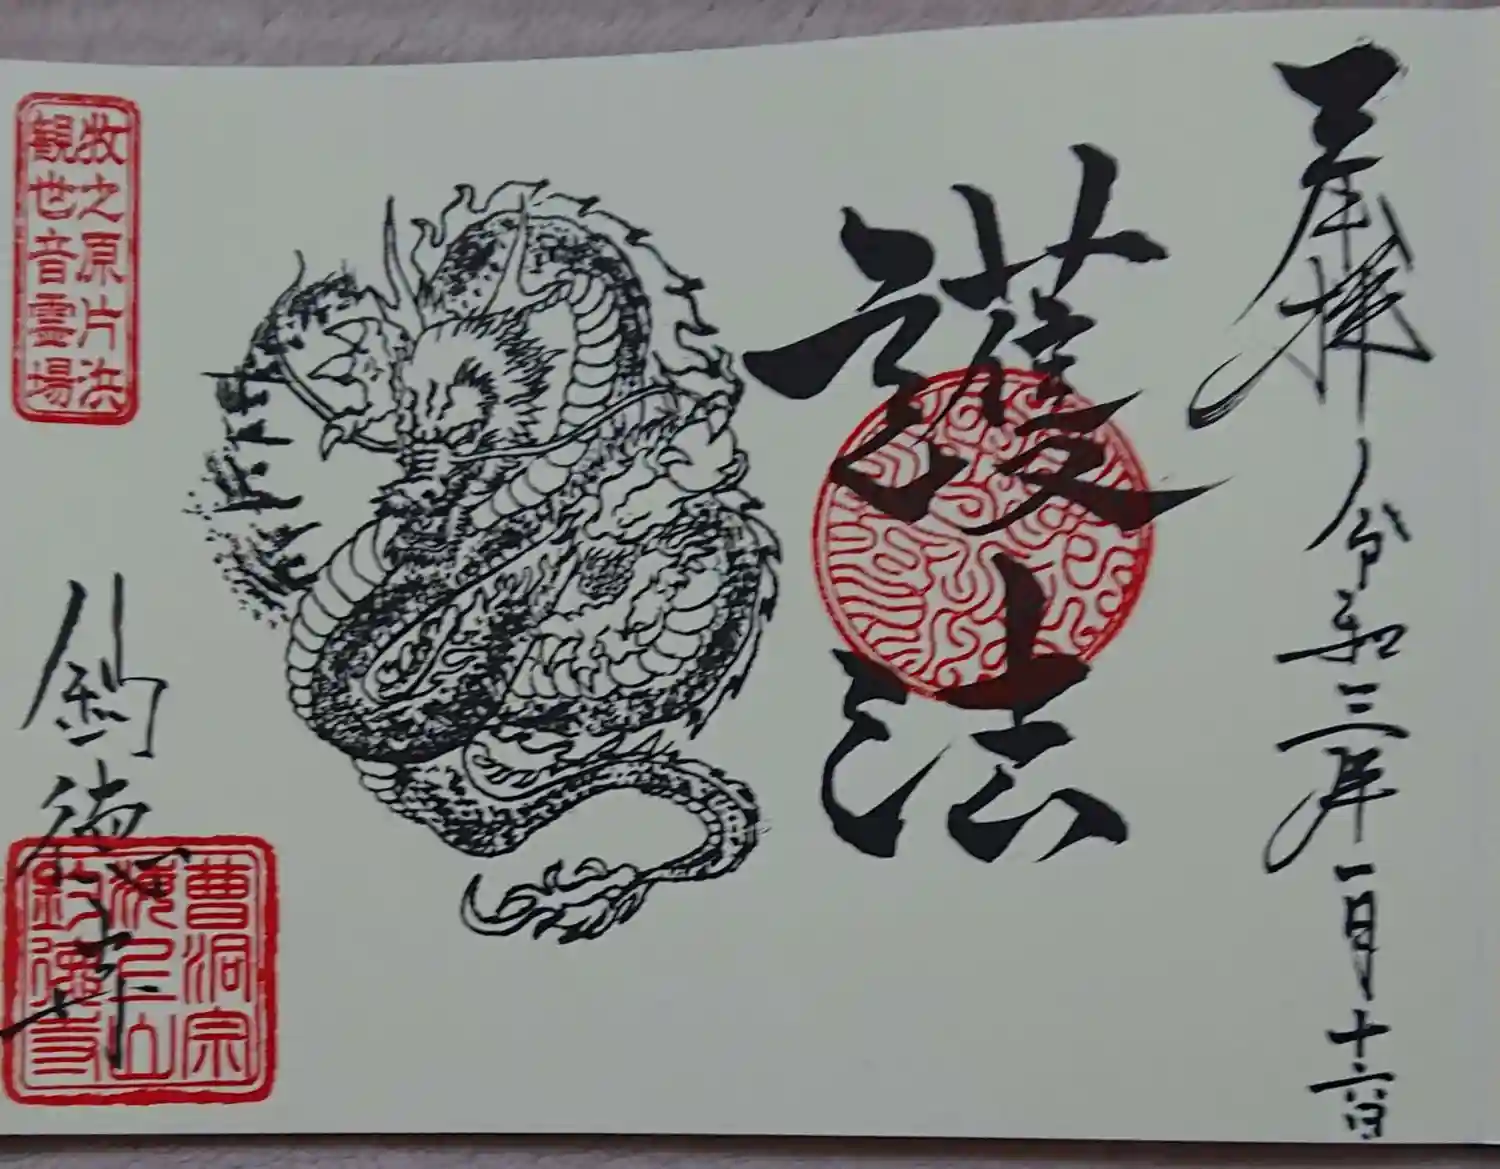 奉拝 令和三年一月十六日
護法
牧之原片浜
観世音霊場
釣徳寺
曹洞宗
山
釣徳寺